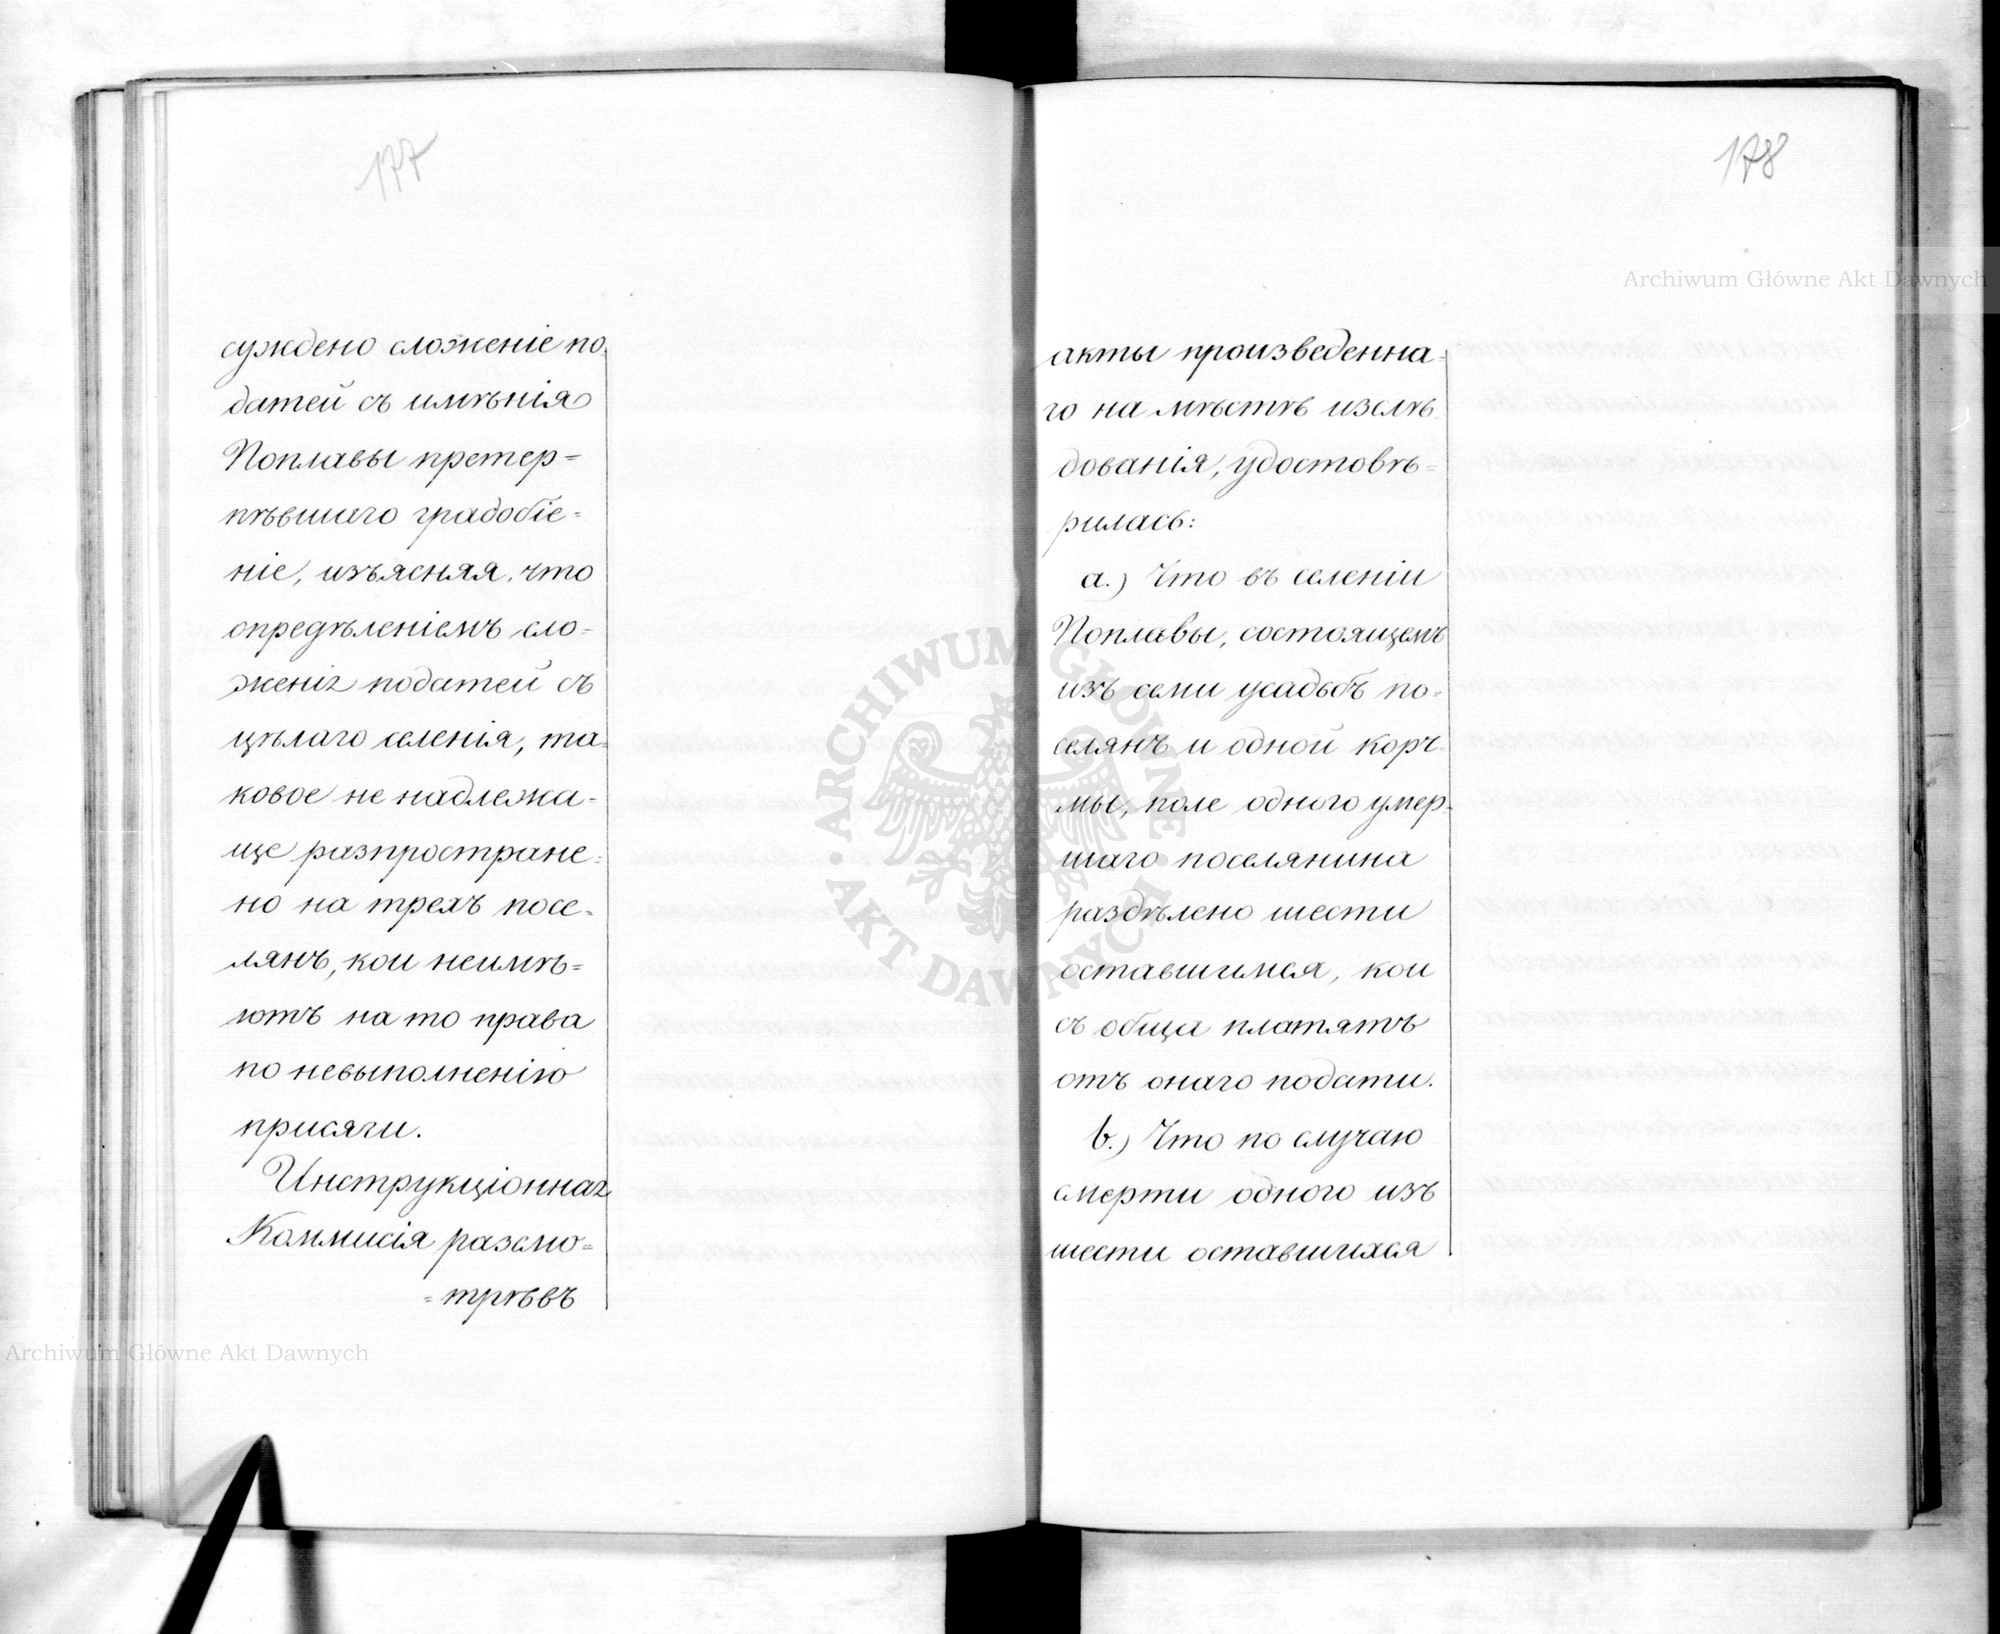 177
суждено сложеніе по-
датей съ имѣнія
Поплавы претер=
пѣвшаго градобіе=
ніе, изъясняя, что
опредѣленіемъ сло=
женія податей съ
цѣлаго селенія, та=
ковое не надлежа=
ще разпростране=
но на трехъ посе=
лянъ, кои неимѣ=
ютъ на то права
по невыполненію
присяги.
Инструкціонная
Коммисія разсмо=
=трѣвъ
178
акты произведенна=
го на мѣстѣ изслѣ=
дованія, удостовѣ=
рилась:
a.) Что въ селеніи
Поплавы, состоящемъ
изъ семи усадьбъ по=
селянъ и одной корч=
мы, поле одного умер=
шаго поселянина
раздѣлено шести
оставшимся, кои
съ обща платятъ
отъ онаго подати.
b.) Что по случаю
смерти одного изъ
шести оставшихся
Archiwum Główne Akt Dawnych
ARCHIWUM GŁÓWNE • AKT DAWNYCH •
Archiwum Główne Akt Dawnych